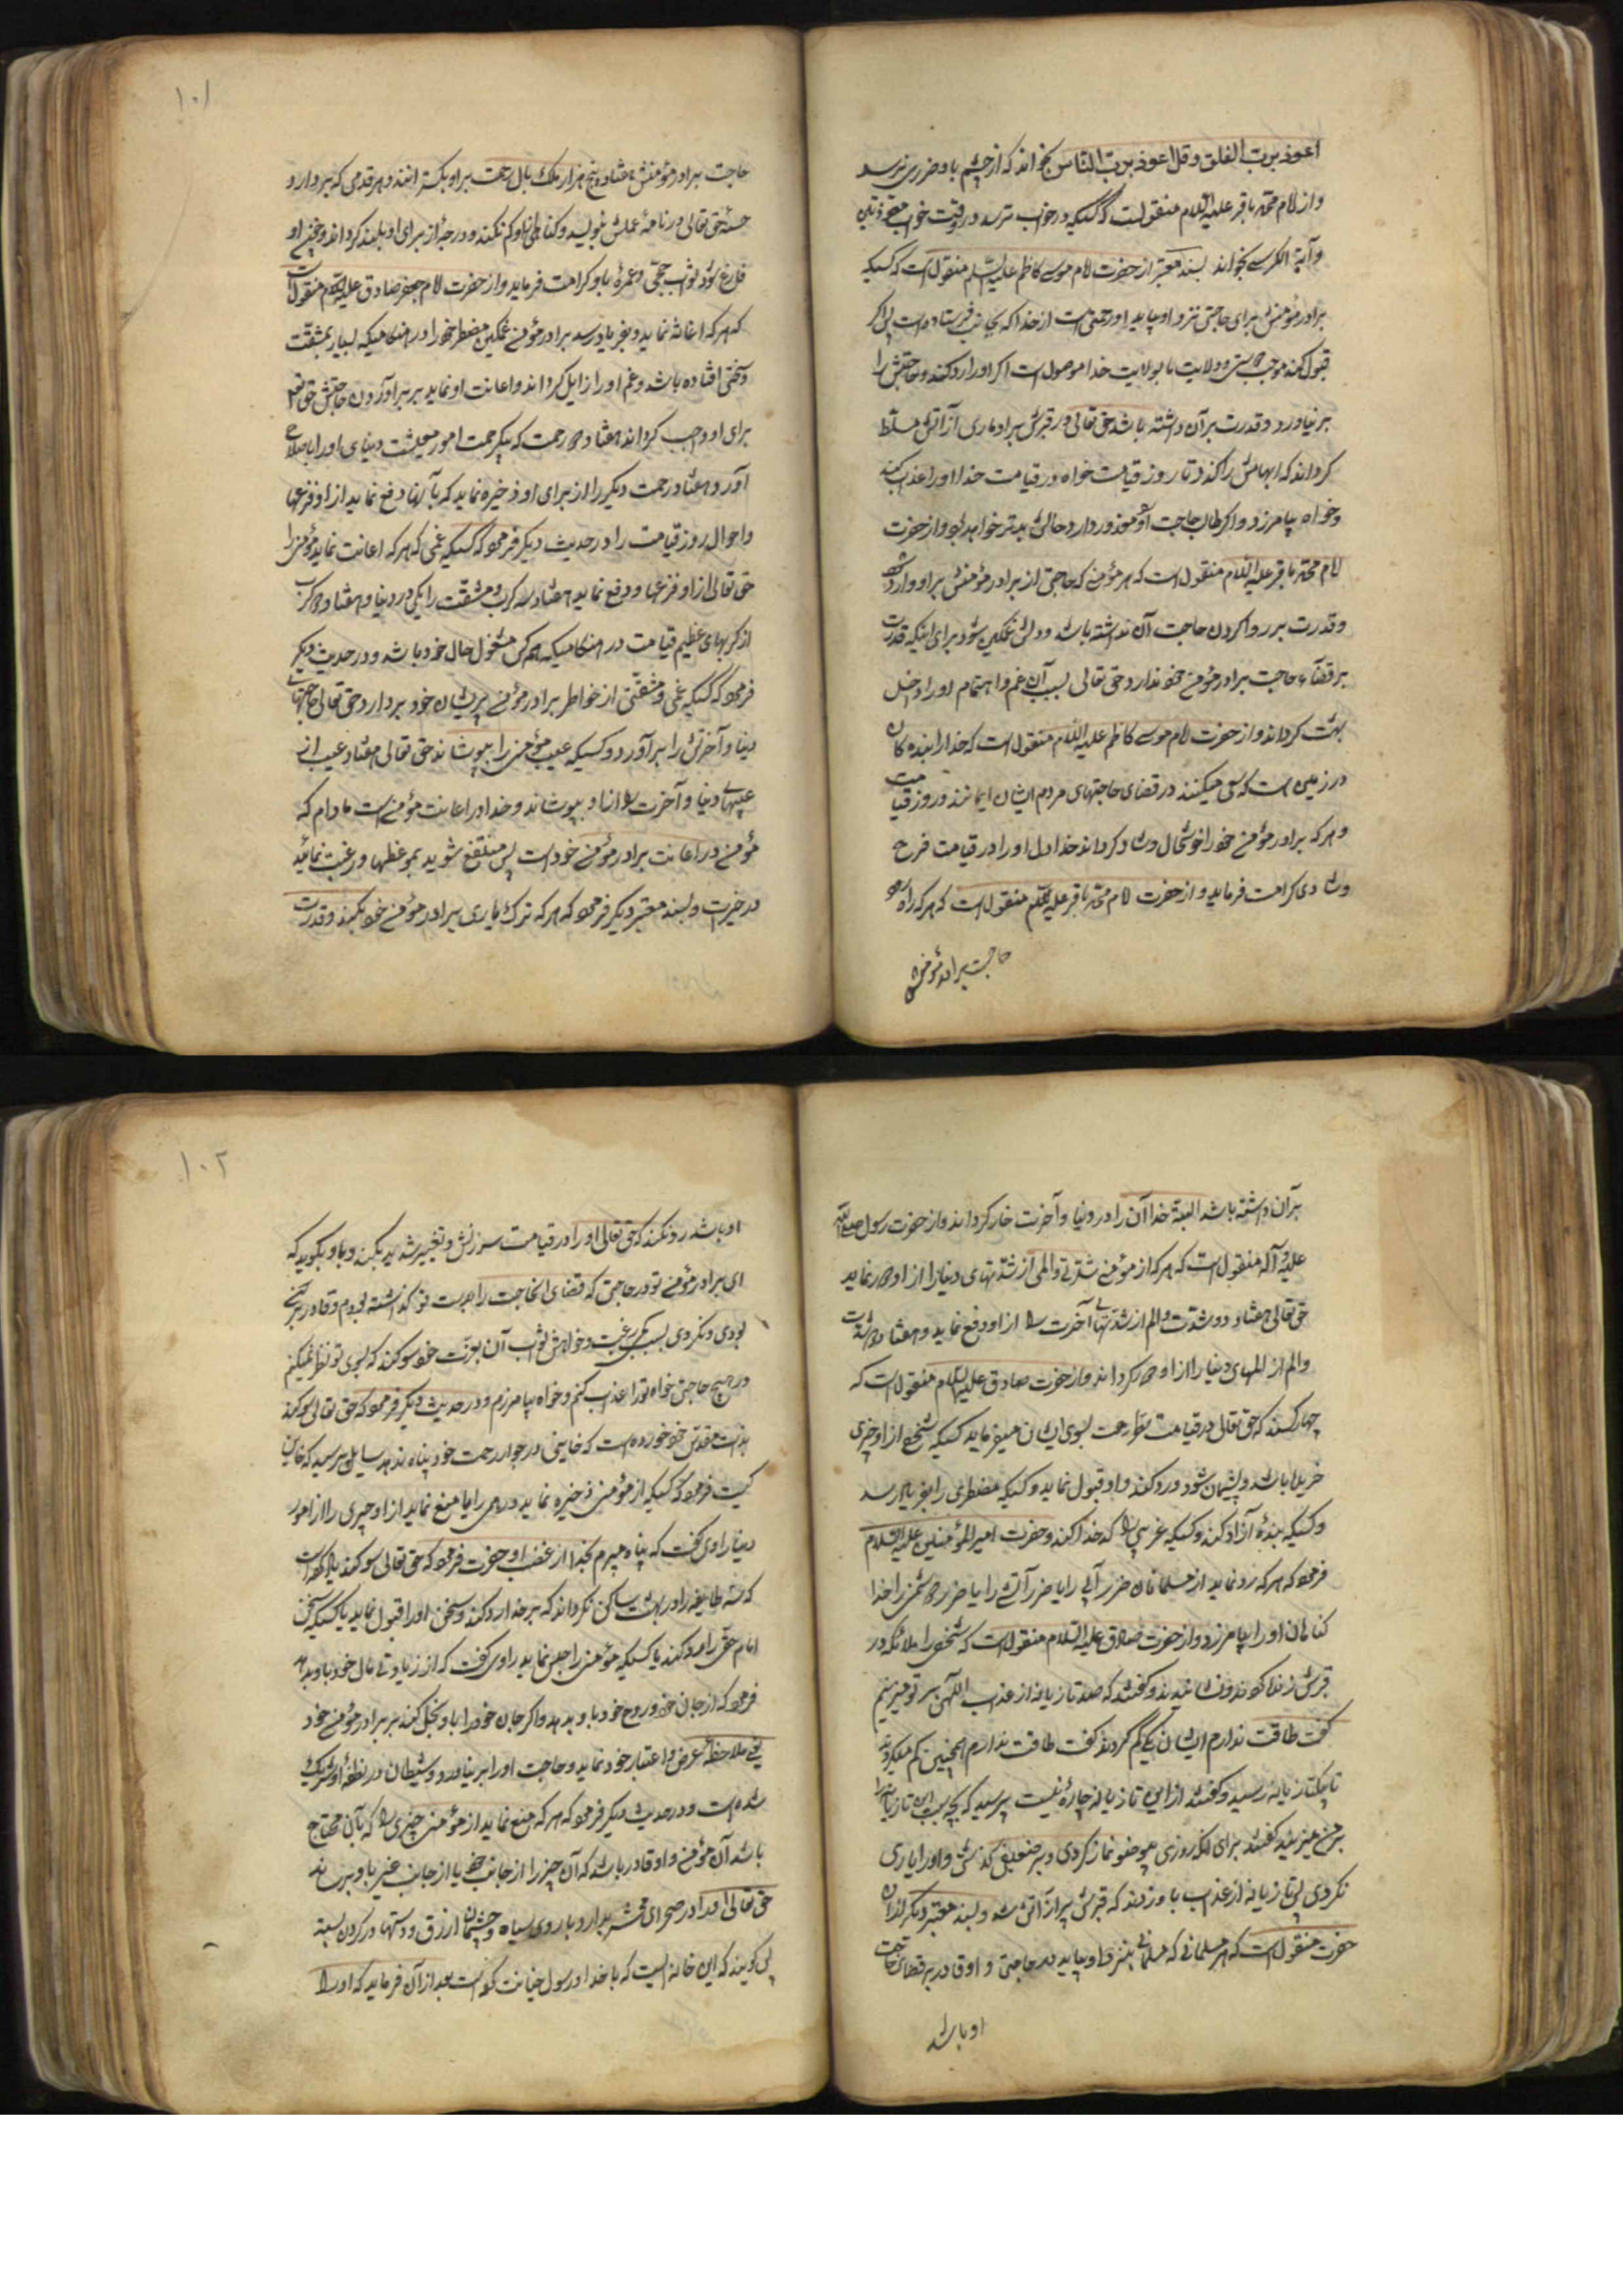 اعوذ برب الفلق و قل اعوذ برب الناس بخواند که از چشم باو ضرری نرسد
و از امام محمد باقر علیه السلام منقولست که کسیکه در خواب ترسد در وقت خواب معوذتین
و آیة الکرسی بخواند بسند معتبر از حضرت امام موسی کاظم علیه السلام منقول است که کسیکه
برادر مؤمنش برای حاجتی نزد او بیاید او رحمتی است از خدا که بجانب فرستاده است پس اگر
قبول کند موجب دوستی و ولایت ما بولایت خدا موصول است اگر او را رد کند و حاجتش را
بر نیاورد و قدرت بر آن داشته باشد حق تعالی در قبرش بر او ماری از آتش مسلط
گرداند که ابهامش را گزد تا روز قیامت خواه در قیامت خدا او را عذاب کند
و خواه بیامرزد و اگر طالب حاجت او معذور دارد حالش بدتر خواهد بود و از حضرت
امام محمد باقر علیه السلام منقول است که هر مؤمنی که حاجتی از برادر مؤمنش بر او وارد شود
و قدرت بر روا کردن حاجت آن نداشته باشد و دلش غمگین شود برای اینکه قدرت
بر قضاء حاجت برادر مؤمن خود ندارد حق تعالی بسبب آن غم و اهتمام او را داخل
بهشت گرداند و از حضرت امام موسی کاظم علیه السلام منقول است که خدا را بنده کان
در زمین است که سعی میکنند در قضای حاجتهای مردم ایشان ایمانند در روز قیامت
و هر که برادر مؤمن خود را خوشحال و شاد گرداند خدا دل او را در قیامت فرح
و شادی کرامت فرماید و از حضرت امام محمد باقر علیه السلام منقول است که هر که راه رود
حاجت برادر مؤمنش
۱۰۱
حاجت برادر مؤمنش هفتاد و پنج هزار ملک بال رحمت بر او بگسترانند و هر قدمی که بردارد
حسنه حق تعالی در نامه عملش بنویسد و گناهی از او کم نکند و درجه از برای او بلند گرداند و چون او
فارغ شود ثواب حجی و عمره باو کرامت فرماید و از حضرت امام جعفر صادق علیه السلام منقول است
که هر که اغاثه نماید و بفریاد رسد برادر مؤمن غمگین مضطر خود را در هنگامیکه بسیار بمشقت
و سختی افتاده باشد و غم او را زایل گرداند و اعانت او نماید بر بر آوردن حاجتش حق تعالی
برای او واجب گرداند هفتاد و دو رحمت که بیکرحمت امور معیشت دنیای او را باصلاح
آورد و هفتاد رحمت دیگر را از برای او ذخیره نماید که بآنها دفع نماید از او فزعها
و احوال روز قیامت را در حدیث دیگر فرمود که کسیکه غمی که هر که اعانت نماید مؤمن را
حق تعالی از او فزعها و دفع نماید هفتاد و سه کرب و مشقت را یکی در دنیا و هفتاد و دو کرب
از کربهای عظیم قیامت در هنگامیکه هر کس مشغول حال خود باشد و در حدیث دیگر
فرمود که کسیکه غمی و مشقتی از خواطر برادر مؤمن پریشان خود بردارد حق تعالی حاجتهای
دنیا و آخرتش را بر آورد و کسیکه عیب مؤمن را بپوشاند حق تعالی هفتاد عیب از
عیبهای دنیا و آخرت او را از او بپوشاند و خدا در اعانت مؤمن است مادام که
مؤمن در اعانت برادر مؤمن خود است پس منتفع شوید بموعظها و رغبت نمائید
در خیرات و بسند معتبر دیگر فرمود که هر که ترک یاری برادر مؤمن خود بکند و قدرت
بر آن داشته باشد البته خدا آن را در دنیا و آخرت خار گرداند و از حضرت رسول صلی الله
علیه و آله منقول است که هر که از مؤمن شدتی و المی از شدتهای دنیا را از او دور نماید
حق تعالی هفتاد و دو شدت و الم از شدتهای آخرت را از او دفع نماید و هفتاد و دو شدت
و الم از المهای دنیا را از او دور گرداند و از حضرت صادق علیه السلام منقول است که
چهار کسند که حق تعالی در قیامت نظر رحمت بسوی ایشان میفرماید کسیکه شخصی از او چیزی
خریده باشد و پشیمان شود و رد کند و او قبول نماید و کسیکه مضطری را بفریاد رسد
و کسیکه بنده آزاد کند و کسیکه عزبی را کدخدا کند و حضرت امیر المؤمنین علیه السلام
فرمود که هر که رد نماید از مسلمانان ضرر آبی را یا ضرر آتش را یا ضرر دشمن را خدا
گناهان او را بیامرزد و از حضرت صادق علیه السلام منقول است که شخصی را ملائکه در
قبرش زنده کردند و نشانیدند و گفتند که صد تازیانه از عذاب الهی بر تو میزنیم
گفت طاقت ندارم ایشان یکی کم کردند گفت طاقت ندارم همچنین کم میکردند
تا بیکتازیانه رسید و گفتند از این تازیانه چاره نیست پرسید که بچه سبب این تازیانه را
بر من میزنید گفتند برای آنکه روزی بیوضو نماز کردی و بر ضعیفی گذشتی و او را یاری
نکردی پس تازیانه از عذاب باو زدند که قبرش پر از آتش شد و بسند معتبر دیگر از آن
حضرت منقول است که هر مسلمانی که مسلمانی بنزد او بیاید در حاجتی و او قادر بر قضای حاجت
او باشد
۱۰۲
او باشد رد نکند که حق تعالی او را در قیامت سرزنش و تغییر شدید بکند و باو بگوید که
ای برادر مؤمن تو در حاجتی که قضای آنحاجت را بدست تو گذاشته بودم و قادر بر
بودی و نکردی بسبب کمی رغبت و خواهش ثواب آن بعزت خود سوگند که بسوی تو نظر نمیکنم
در هیچ حاجتی خواه تو را عذاب کنم و خواه بیامرزم و در حدیث دیگر فرمود که حق تعالی سوگند
بذات مقدس خود خورده است که خاینی در جوار رحمت خود پناه ندهد سایل پرسید که خاین
کیست فرمود که کسیکه از مؤمنی ذخیره نماید درهمی را یا منع نماید از او چیزی را از امور
دنیا راوی گفت که پناه میبرم بخدا از غضب او حضرت فرمود که حق تعالی سوگند یاد کرده است
که سه طایفه را در بهشت ساکن نگرداند که بر خدا رد کند و سخن او را قبول ننماید یا کسیکه سخن
امام حق را رد کند یا کسیکه مؤمن را حبس نماید راوی گفت که از زیادتی مال خود باو بدهد
فرمود که از جان خود و روح خود باو بدهد و اگر جان خود را باو بخل کند بر برادر مؤمن خود
یعنی ملاحظه عرض و اعتبار خود نماید و حاجت او را بر نیاورد و شیطان در نطفه او شریک
شده است و در حدیث دیگر فرمود که هر که منع نماید از مؤمنی چیزی را که بآن محتاج
باشد آن مؤمن و او قادر باشد که آن چیز را از جانب خود یا از جانب غیر باو برساند
حق تعالی او را در صحرای محشر بدارد با روی سیاه و چشمان ازرق و دستها در گردن بسته
پس گویند که این خائنیست که با خدا و رسول خیانت کرده است بعد از آن فرماید که او را